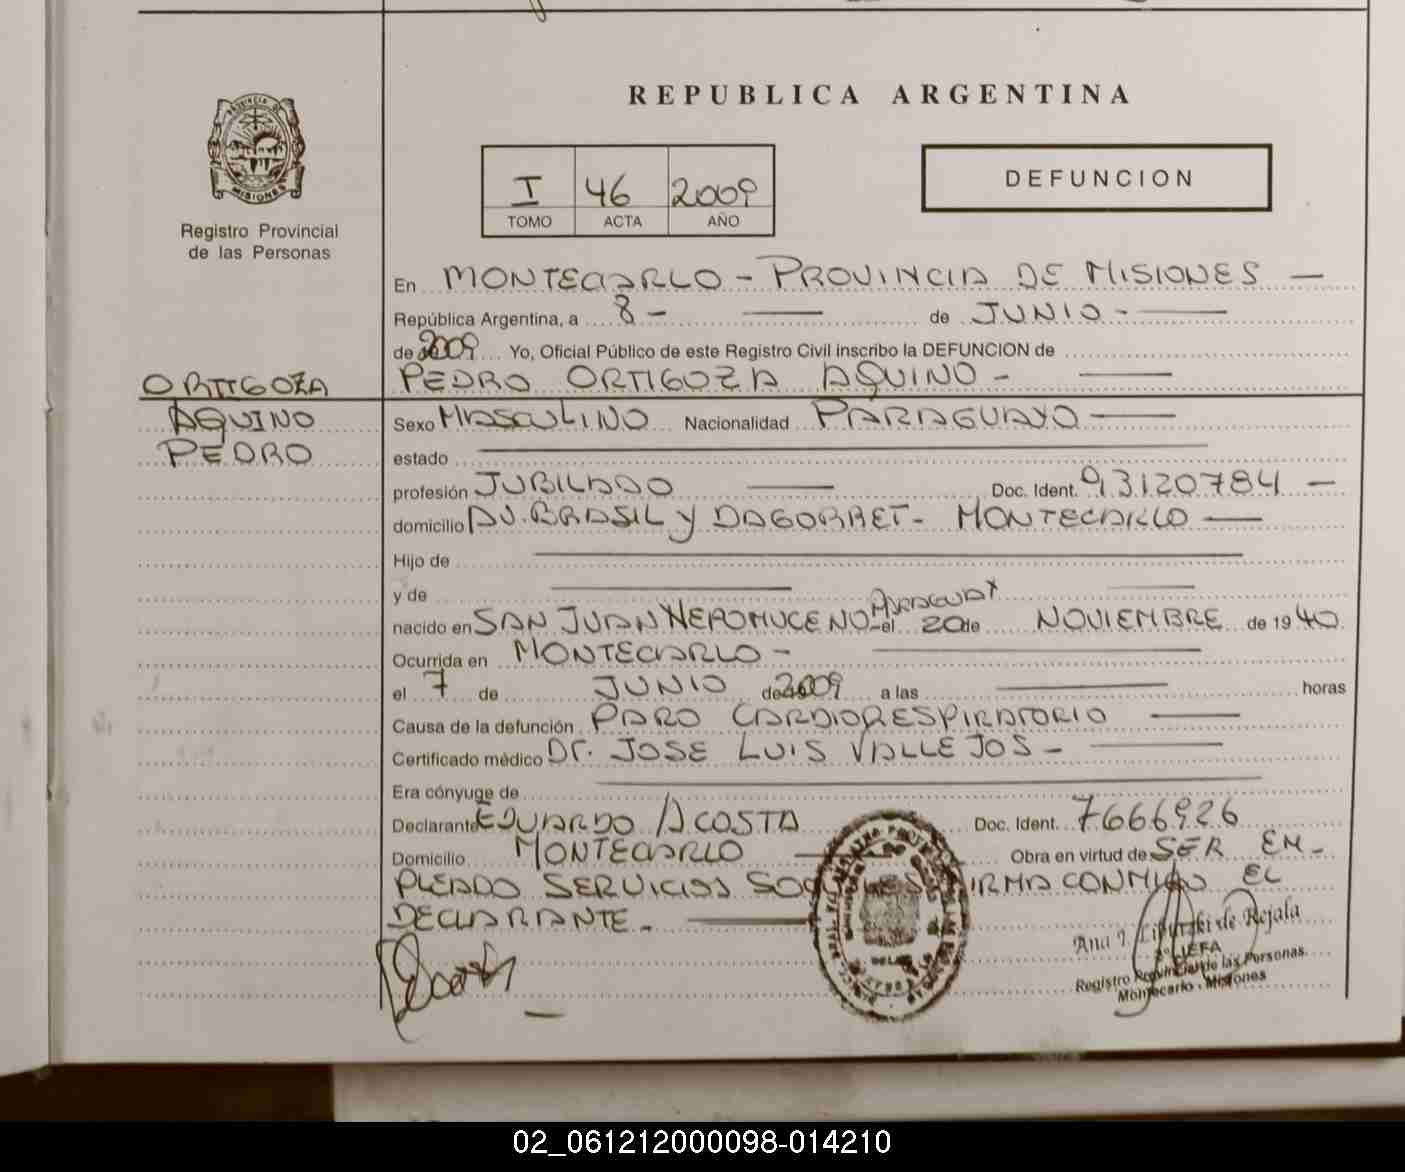 REPUBLICA ARGENTINA
PROVINCIA DE
MISIONES
Registro Provincial
de las Personas
I 46 2009
TOMO ACTA AÑO
DEFUNCION
En MONTECARLO - PROVINCIA DE MISIONES —
República Argentina, a 8 - — de JUNIO - —
de 2009 Yo, Oficial Público de este Registro Civil inscribo la DEFUNCION de
PEDRO ORTIGOZA AQUINO - —
ORTIGOZA
AQUINO
PEDRO
Sexo MASCULINO Nacionalidad PARAGUAYO —
estado —
profesión JUBILADO — Doc. Ident. 93120784 —
domicilio AV. BRASIL Y DAGORRET - MONTECARLO —
Hijo de —
y de — —
nacido en SAN JUAN NEPOMUCENO - PARAGUAY el 20 de NOVIEMBRE de 1940
Ocurrida en MONTECARLO - —
el 7 de JUNIO de 2009 a las — horas
Causa de la defunción PARO CARDIORESPIRATORIO —
Certificado médico Dr. JOSE LUIS VALLEJOS - —
Era cónyuge de —
Declarante EDUARDO ACOSTA Doc. Ident. 7666926
Domicilio MONTECARLO — Obra en virtud de SER EM-
PLEADO SERVICIOS SOCIALES FIRMA CONMIGO EL
DECLARANTE. —
Registro Provincial de las Personas
Montecarlo - Misiones
02_061212000098-014210